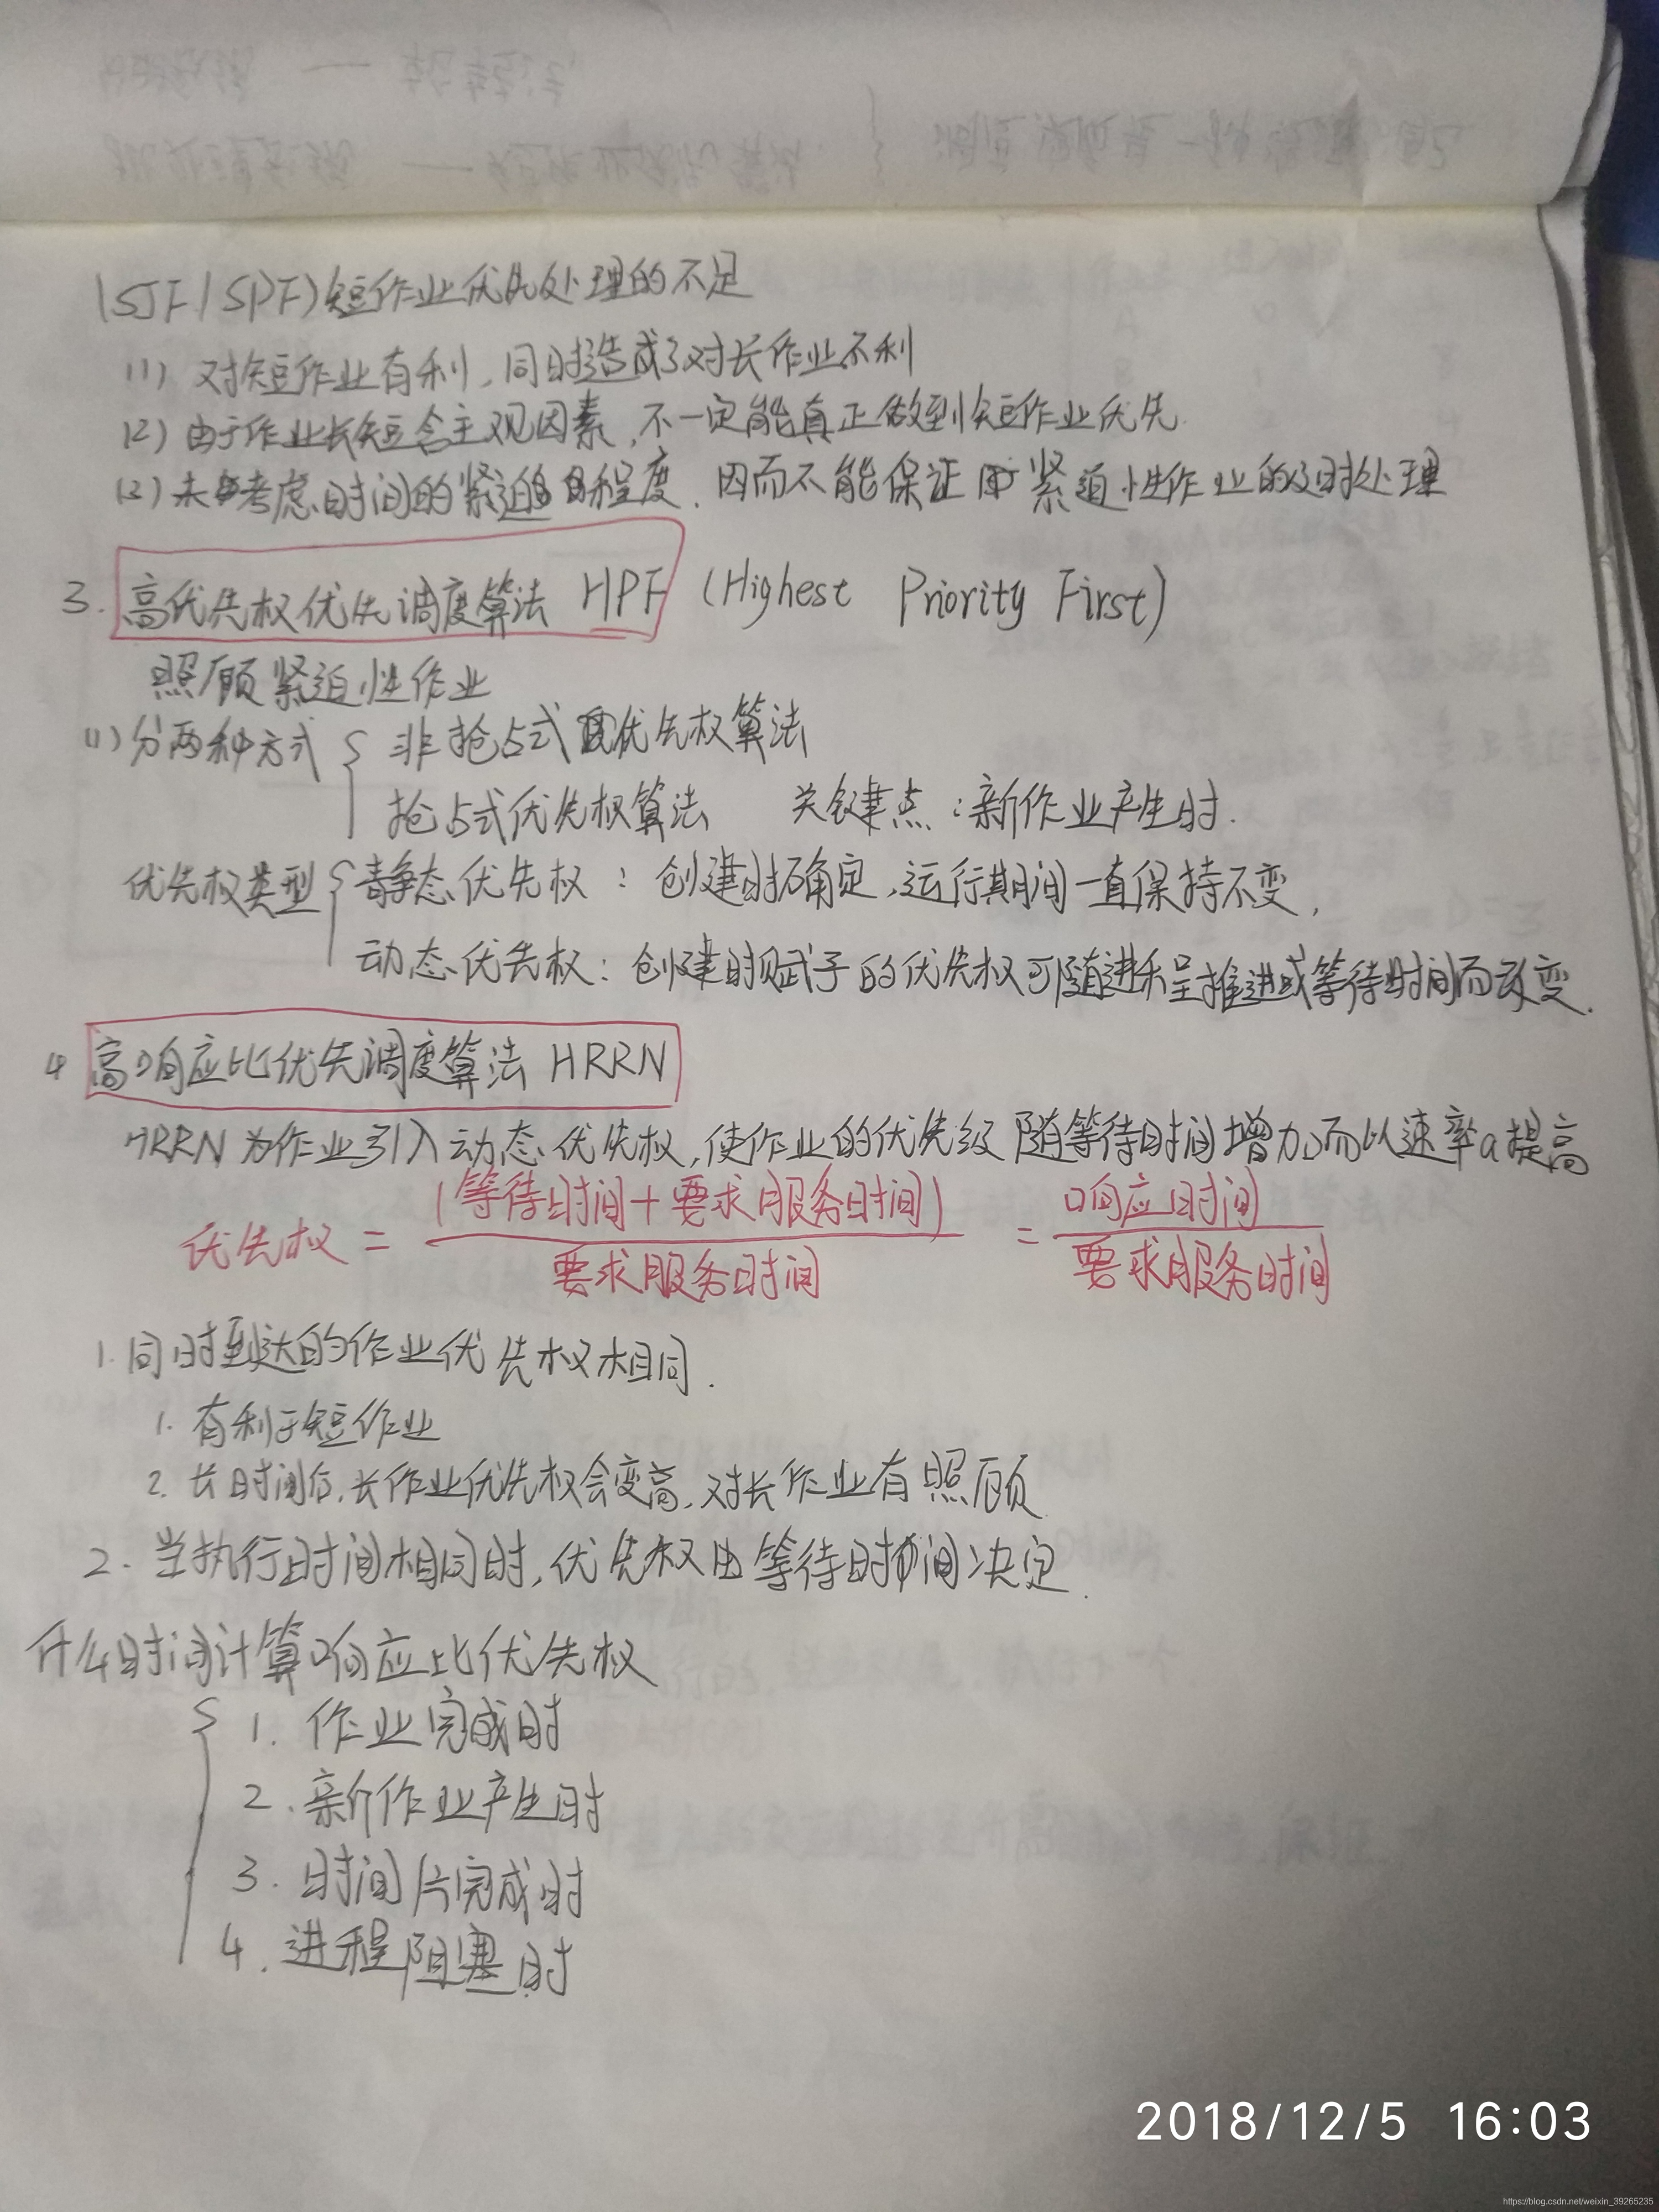 (SJF/SPF)短作业优先处理的不足
(1) 对短作业有利,同时造成了对长作业不利
(2) 由于作业长短含主观因素,不一定能真正做到短作业优先.
(3) 未考虑时间的紧迫程度.因而不能保证紧迫性作业的及时处理
3. 高优先权优先调度算法 HPF (Highest Priority First)
照顾紧迫性作业
(1) 分两种方式 { 非抢占式优先权算法
抢占式优先权算法 关键点:新作业产生时.
优先权类型 { 静态优先权: 创建时确定,运行期间一直保持不变,
动态优先权: 创建时赋予的优先权可随进程推进或等待时间而改变.
4 高响应比优先调度算法 HRRN
HRRN为作业引入动态优先权,使作业的优先级随等待时间增加而以速率a提高
优先权 = (等待时间+要求服务时间) / 要求服务时间 = 响应时间 / 要求服务时间
1. 同时到达的作业优先权相同.
1. 有利于短作业
2. 长时间后,长作业优先权会变高,对长作业有照顾
2. 当执行时间相同时,优先权由等待时间决定.
什么时间计算响应比优先权
{ 1. 作业完成时
2. 新作业产生时
3. 时间片完成时
4. 进程阻塞时
2018/12/5 16:03
https://blog.csdn.net/weixin_39265235